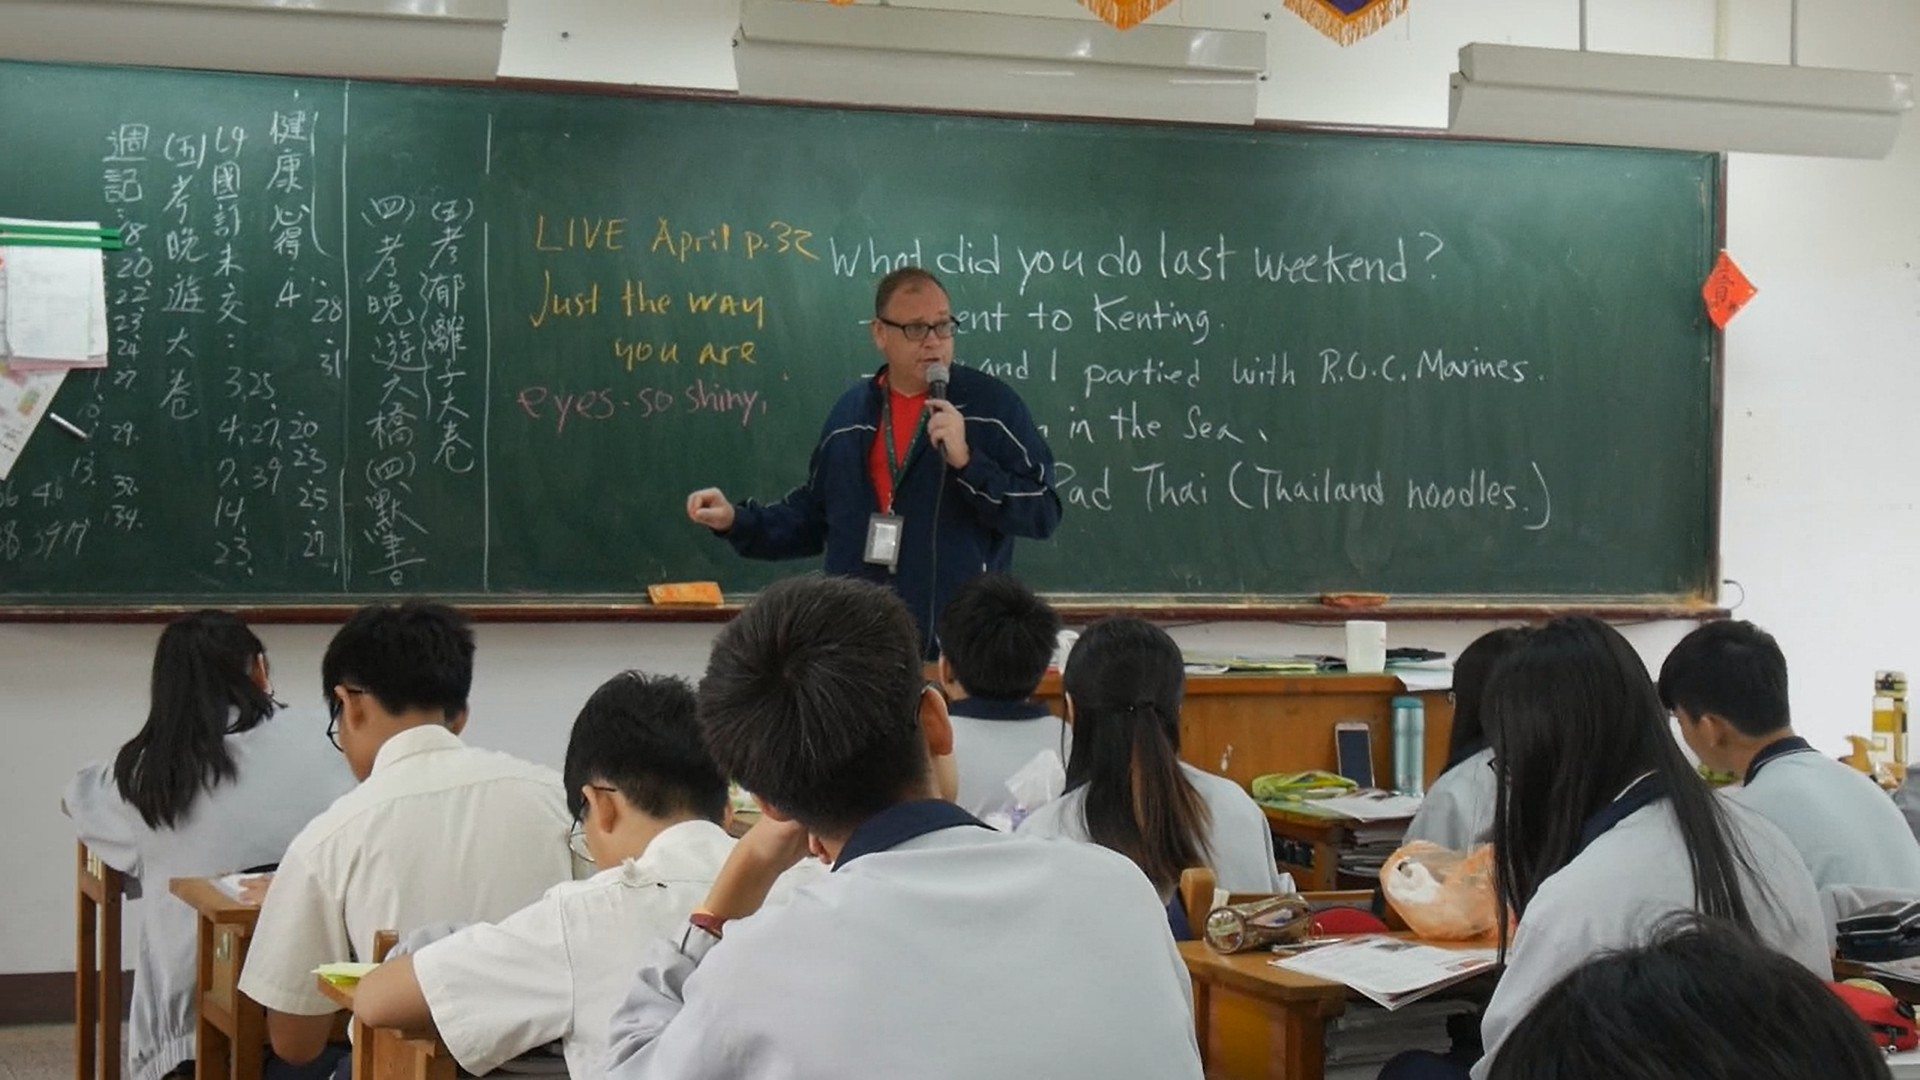 健康心得:4.28.31
(四)國訂未交:3.25
4.27.20
7.39 23
14. 25
23. 27.
(五)考晚遊大卷
週記:8.
20.
22.
23.
24.
27.
29.
32.
34.
(五)考郁離子大卷
(四)考晚遊大橋(四)默書
LIVE April p.32
Just the way
you are
eyes so shiny,
What did you do last weekend?
ent to Kenting.
and I partied with R.O.C. Marines.
in the Sea.
Pad Thai (Thailand noodles.)